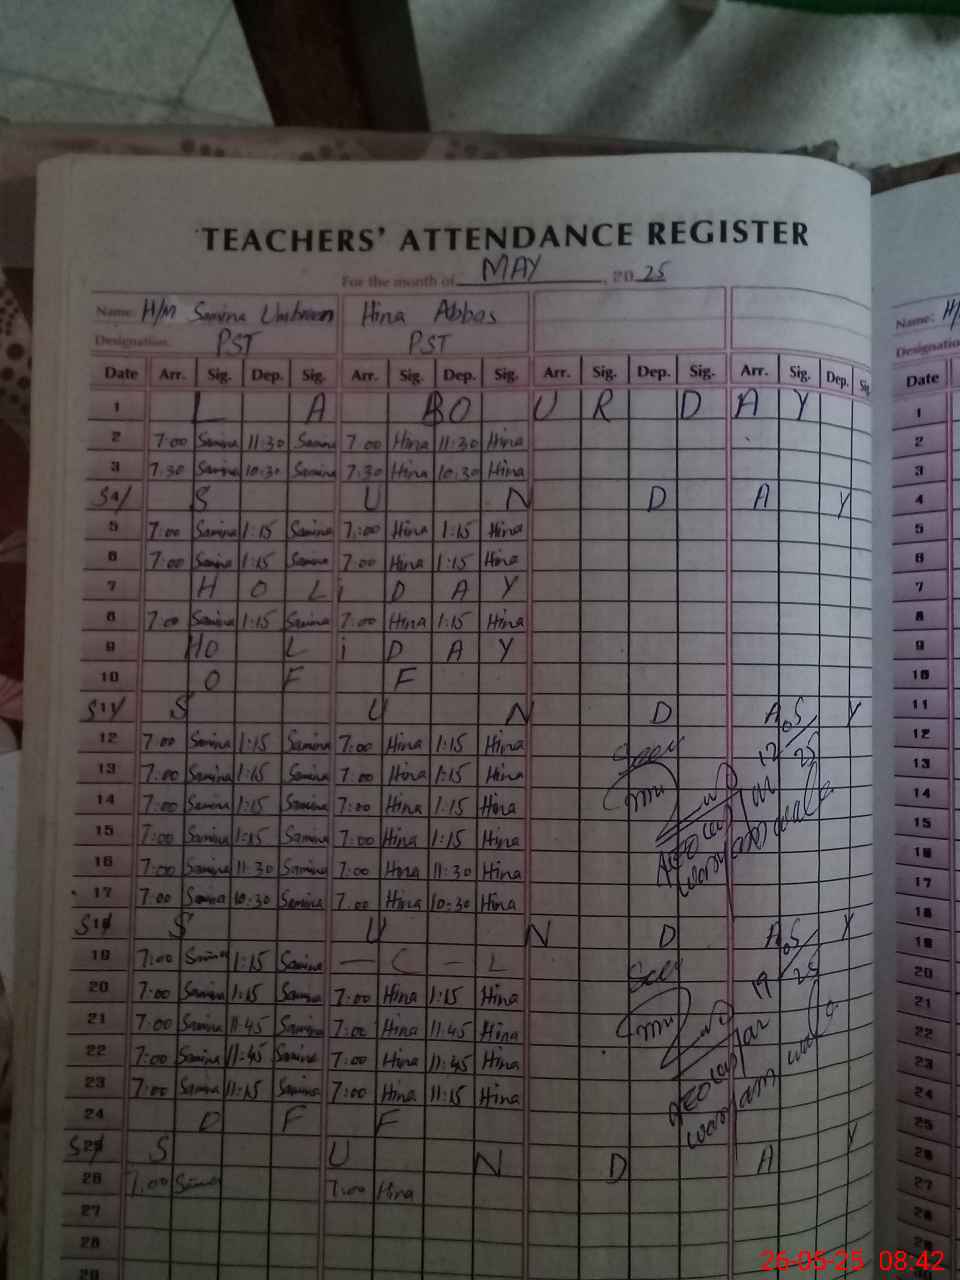 TEACHERS' ATTENDANCE REGISTER
For the month of MAY, 20 25
Name: H/M Samina Hina Abbas
Designation: PST PST
Date Arr. Sig. Dep. Sig. Arr. Sig. Dep. Sig. Arr. Sig. Dep. Sig. Arr. Sig. Dep. Sig.
1 L A BO U R D A Y
2 7:00 Samina 11:30 Samina 7:00 Hina 11:30 Hina
3 7:30 Samina 10:30 Samina 7:30 Hina 10:30 Hina
S4/ S U N D A Y
5 7:00 Samina 1:15 Samina 7:00 Hina 1:15 Hina
6 7:00 Samina 1:15 Samina 7:00 Hina 1:15 Hina
7 H O L i D A Y
8 7:00 Samina 1:15 Samina 7:00 Hina 1:15 Hina
9 HO L i D A Y
10 O F F
S11 S U N D A Y
12 7:00 Samina 1:15 Samina 7:00 Hina 1:15 Hina
13 7:00 Samina 1:15 Samina 7:00 Hina 1:15 Hina
14 7:00 Samina 1:15 Samina 7:00 Hina 1:15 Hina
15 7:00 Samina 1:15 Samina 7:00 Hina 1:15 Hina
16 7:00 Samina 11:30 Samina 7:00 Hina 11:30 Hina
17 7:00 Samina 10:30 Samina 7:00 Hina 10:30 Hina
S18 S U N D A Y
19 7:00 Samina 1:15 Samina — C — L
20 7:00 Samina 1:15 Samina 7:00 Hina 1:15 Hina
21 7:00 Samina 11:45 Samina 7:00 Hina 11:45 Hina
22 7:00 Samina 11:45 Samina 7:00 Hina 11:45 Hina
23 7:00 Samina 11:15 Samina 7:00 Hina 11:15 Hina
24 O F F
S25 S U N D A Y
26 7:00 Samina 7:00 Hina
27
28
29
Seen
12/05/25
Seen
19/05/25
Name: H/
Designation
Date
1
2
3
4
5
6
7
8
9
10
11
12
13
14
15
16
17
18
19
20
21
22
23
24
25
26
27
28
29
26-05-25 08:42